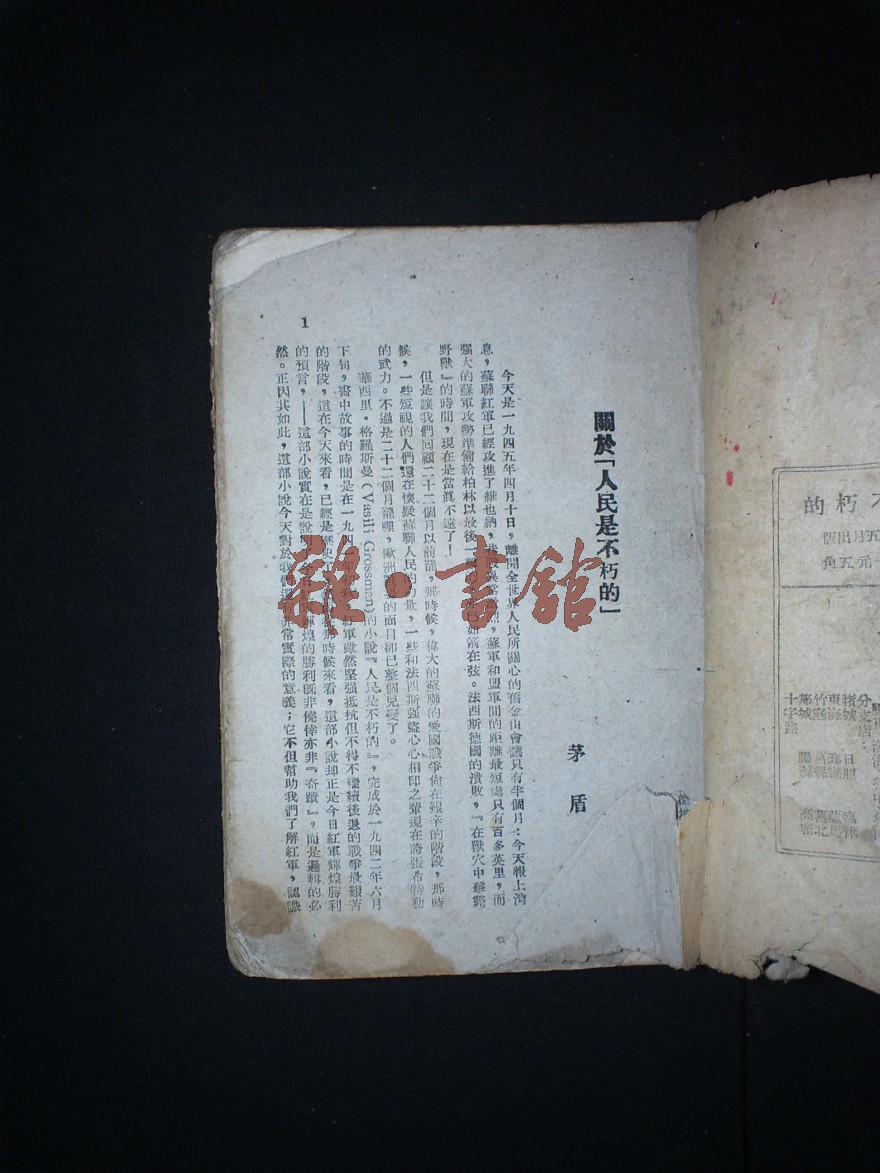 關於「人民是不朽的」
茅盾
今天是一九四五年四月十日，離開全世界人民所關心的舊金山會議只有半個月；今天報上消
息，蘇聯紅軍已經攻進了維也納，蘇軍和盟軍間的距離最短處只有百多英里，而
強大的蘇軍攻勢準備給柏林以最後一如箭在弦。法西斯德國的潰敗，『在獸穴中擊斃
野獸』的時間，現在是當眞不遠了！
但是讓我們回顧二十二個月以前罷，那時候，偉大的蘇聯的愛國戰爭尙在艱辛的階段，那時
候，一些短視的人們還在懷疑蘇聯人民的力量，一些和法西斯強盜心心相印之輩還在誇張希特勒
的武力。不過是二十二個月罷哩，歐洲的面目卻已整個兒變了。
華西里·格羅斯曼(Vasili Grossman)的小說『人民是不朽的』，完成於一九四二年六月
下旬，書中故事的時間是在一九四一年軍雖然堅強抵抗但不得不繼續後退的戰爭最艱苦
的階段，這在今天來看，已經是歷史了時候來看，這部小說却正是今日紅軍輝煌勝利
的預言，——這部小說實在是說明輝煌的勝利旣非僥倖亦非『奇蹟』，而是邏輯的必
然。正因其如此，這部小說今天對於我們非常實際的意義；它不但幫助我們了解紅軍，認識
1
雜·書館
不朽的
五月出版
元五角